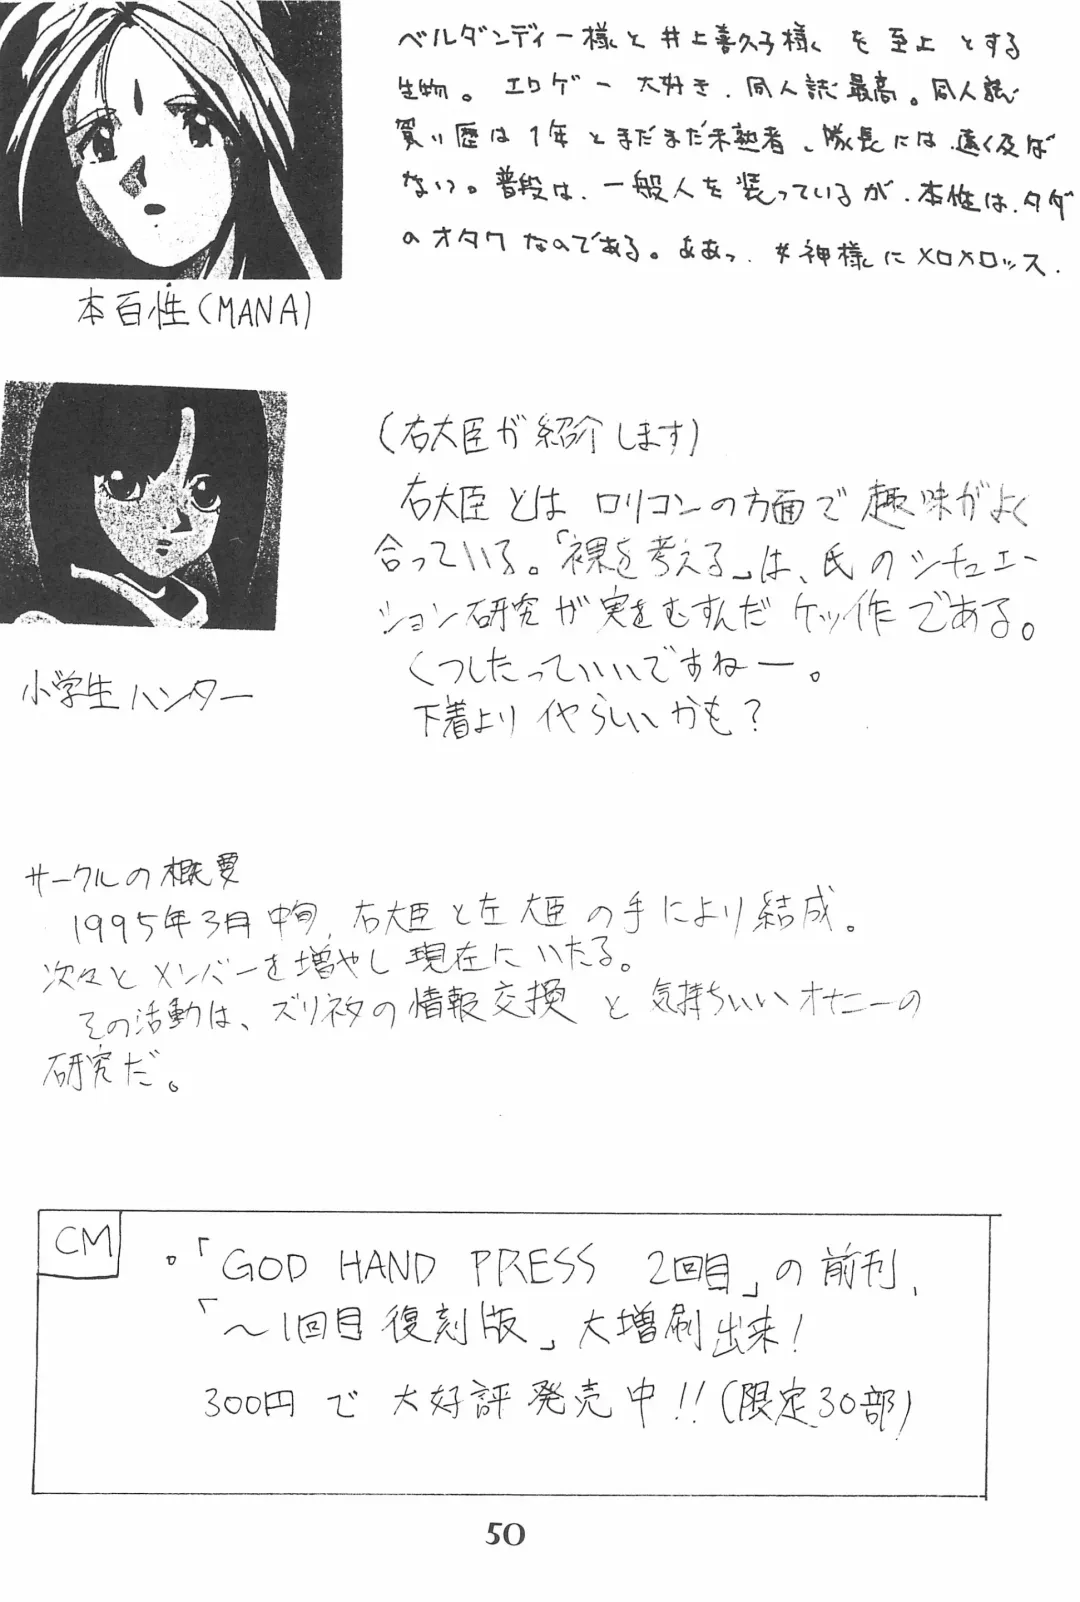 ベルダンディー様と井上喜久子様を至上とする
生物。エロゲー大好き、同人誌最高。同人誌
買い歴は1年とまだまだ未熟者、隊長には遠く及ば
ない。普段は、一般人を装っているが、本性は、タダ
のオタクなのである。ああっ、女神様にメロメロッス.
本百性(MANA)
(右大臣が紹介します)
右大臣とはロリコンの方面で趣味がよく
合っている。「裸を考える」は、氏のシチュエー
ション研究が実をむすんだケッ作である。
くつしたっていいですねー。
下着よりイヤらしいかも?
小学生ハンター
サークルの概要
1995年3月中旬、右大臣と左大臣の手により結成。
次々とメンバーを増やし現在にいたる。
その活動は、ズリネタの情報交換と気持ちいいオナニーの
研究だ。
CM
。「GOD HAND PRESS 2回目」の前刊、
「~1回目復刻版」大増刷出来!
300円で大好評発売中!!(限定30部)
50